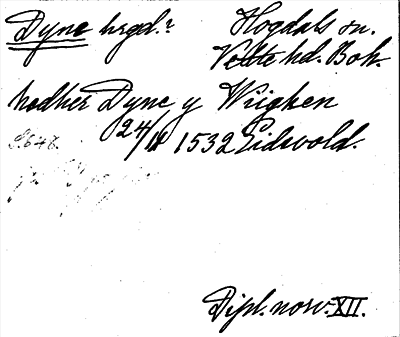 Dyne hrgd.? Hogdals sn.
Vette hd. Boh.
hedher Dyne y Wiighen
24/11 1532 Eidsvold.
S. 648.
Dipl. norv. XII.